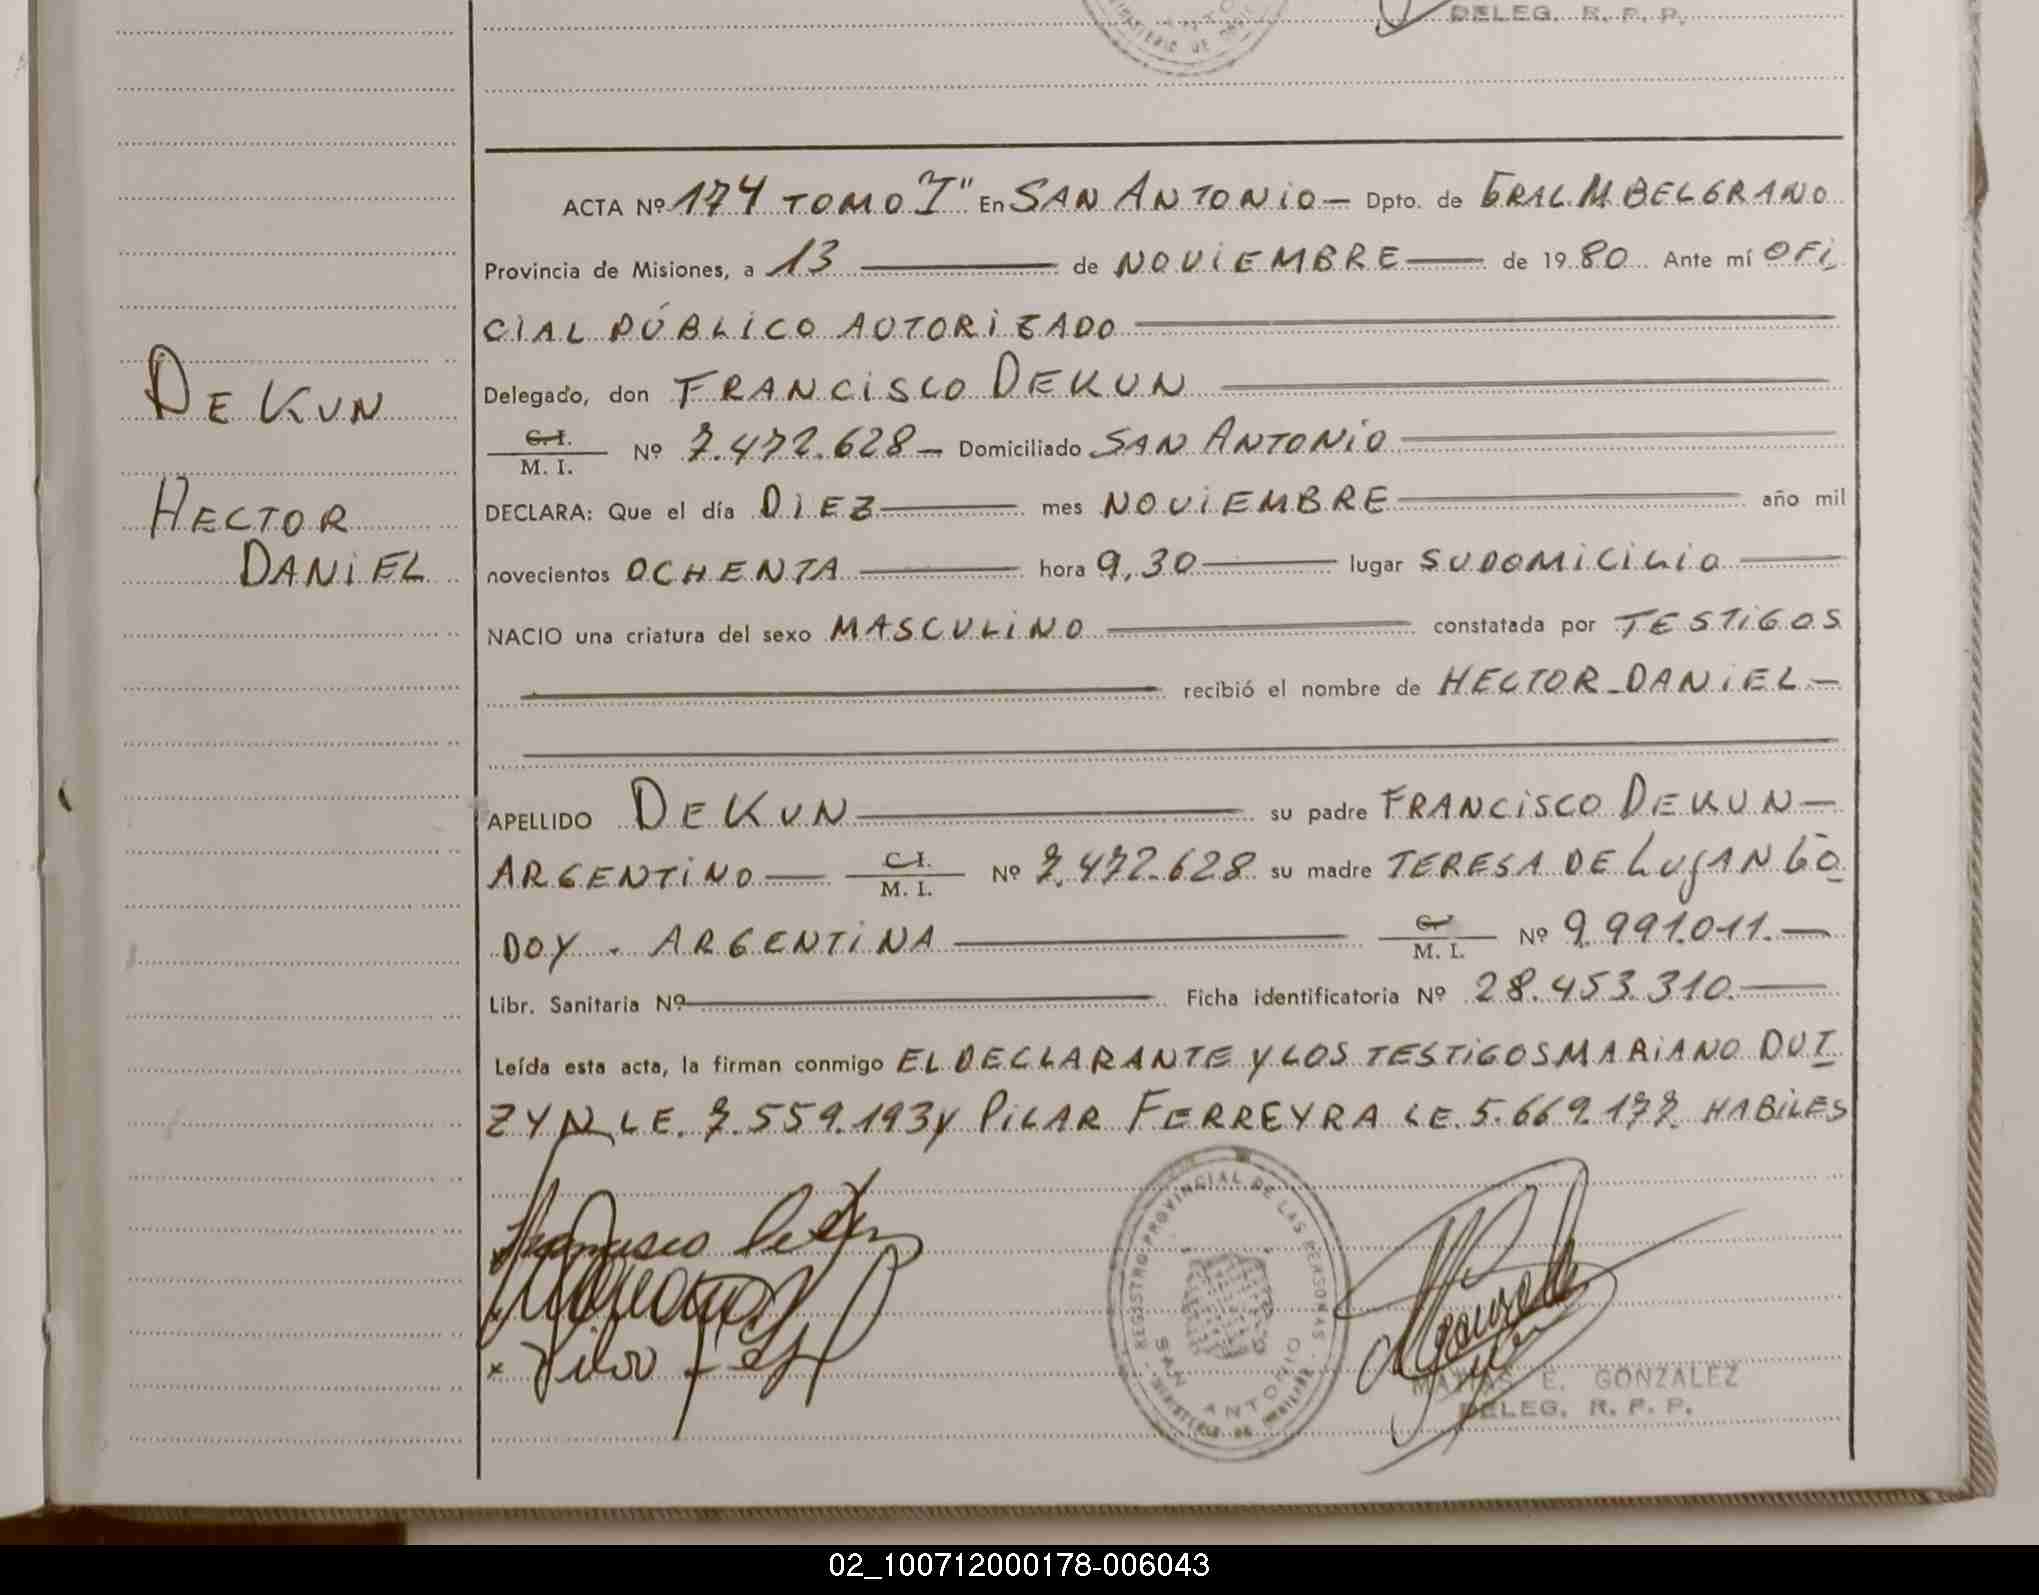 DELEG. R. P. P.
ACTA Nº 174 TOMO "I" En SAN ANTONIO — Dpto. de GRAL M BELGRANO
Provincia de Misiones, a 13 de NOVIEMBRE de 1980 Ante mí OFI
CIAL PÚBLICO AUTORIZADO
Delegado, don FRANCISCO DEKUN
C. I.
M. I. Nº 7.472.628 — Domiciliado SAN ANTONIO
DECLARA: Que el día DIEZ mes NOVIEMBRE año mil
novecientos OCHENTA hora 9,30 lugar SU DOMICILIO
NACIO una criatura del sexo MASCULINO constatada por TESTIGOS
recibió el nombre de HECTOR DANIEL
APELLIDO DEKUN su padre FRANCISCO DEKUN
ARGENTINO C. I. M. I. Nº 7.472.628 su madre TERESA DE LUJAN GO
DOY - ARGENTINA M. I. Nº 9.991.011.
Libr. Sanitaria Nº Ficha identificatoria Nº 28.453.310.
Leída esta acta, la firman conmigo EL DECLARANTE Y LOS TESTIGOS MARIANO DUT
ZYN LE. 7.559.193 y PILAR FERREYRA LE. 5.669.177 HABILES
DEKUN
HECTOR
DANIEL
REGISTRO PROVINCIAL DE LAS PERSONAS
SAN ANTONIO
MATIAS E. GONZALEZ
DELEG. R. P. P.
02_100712000178-006043